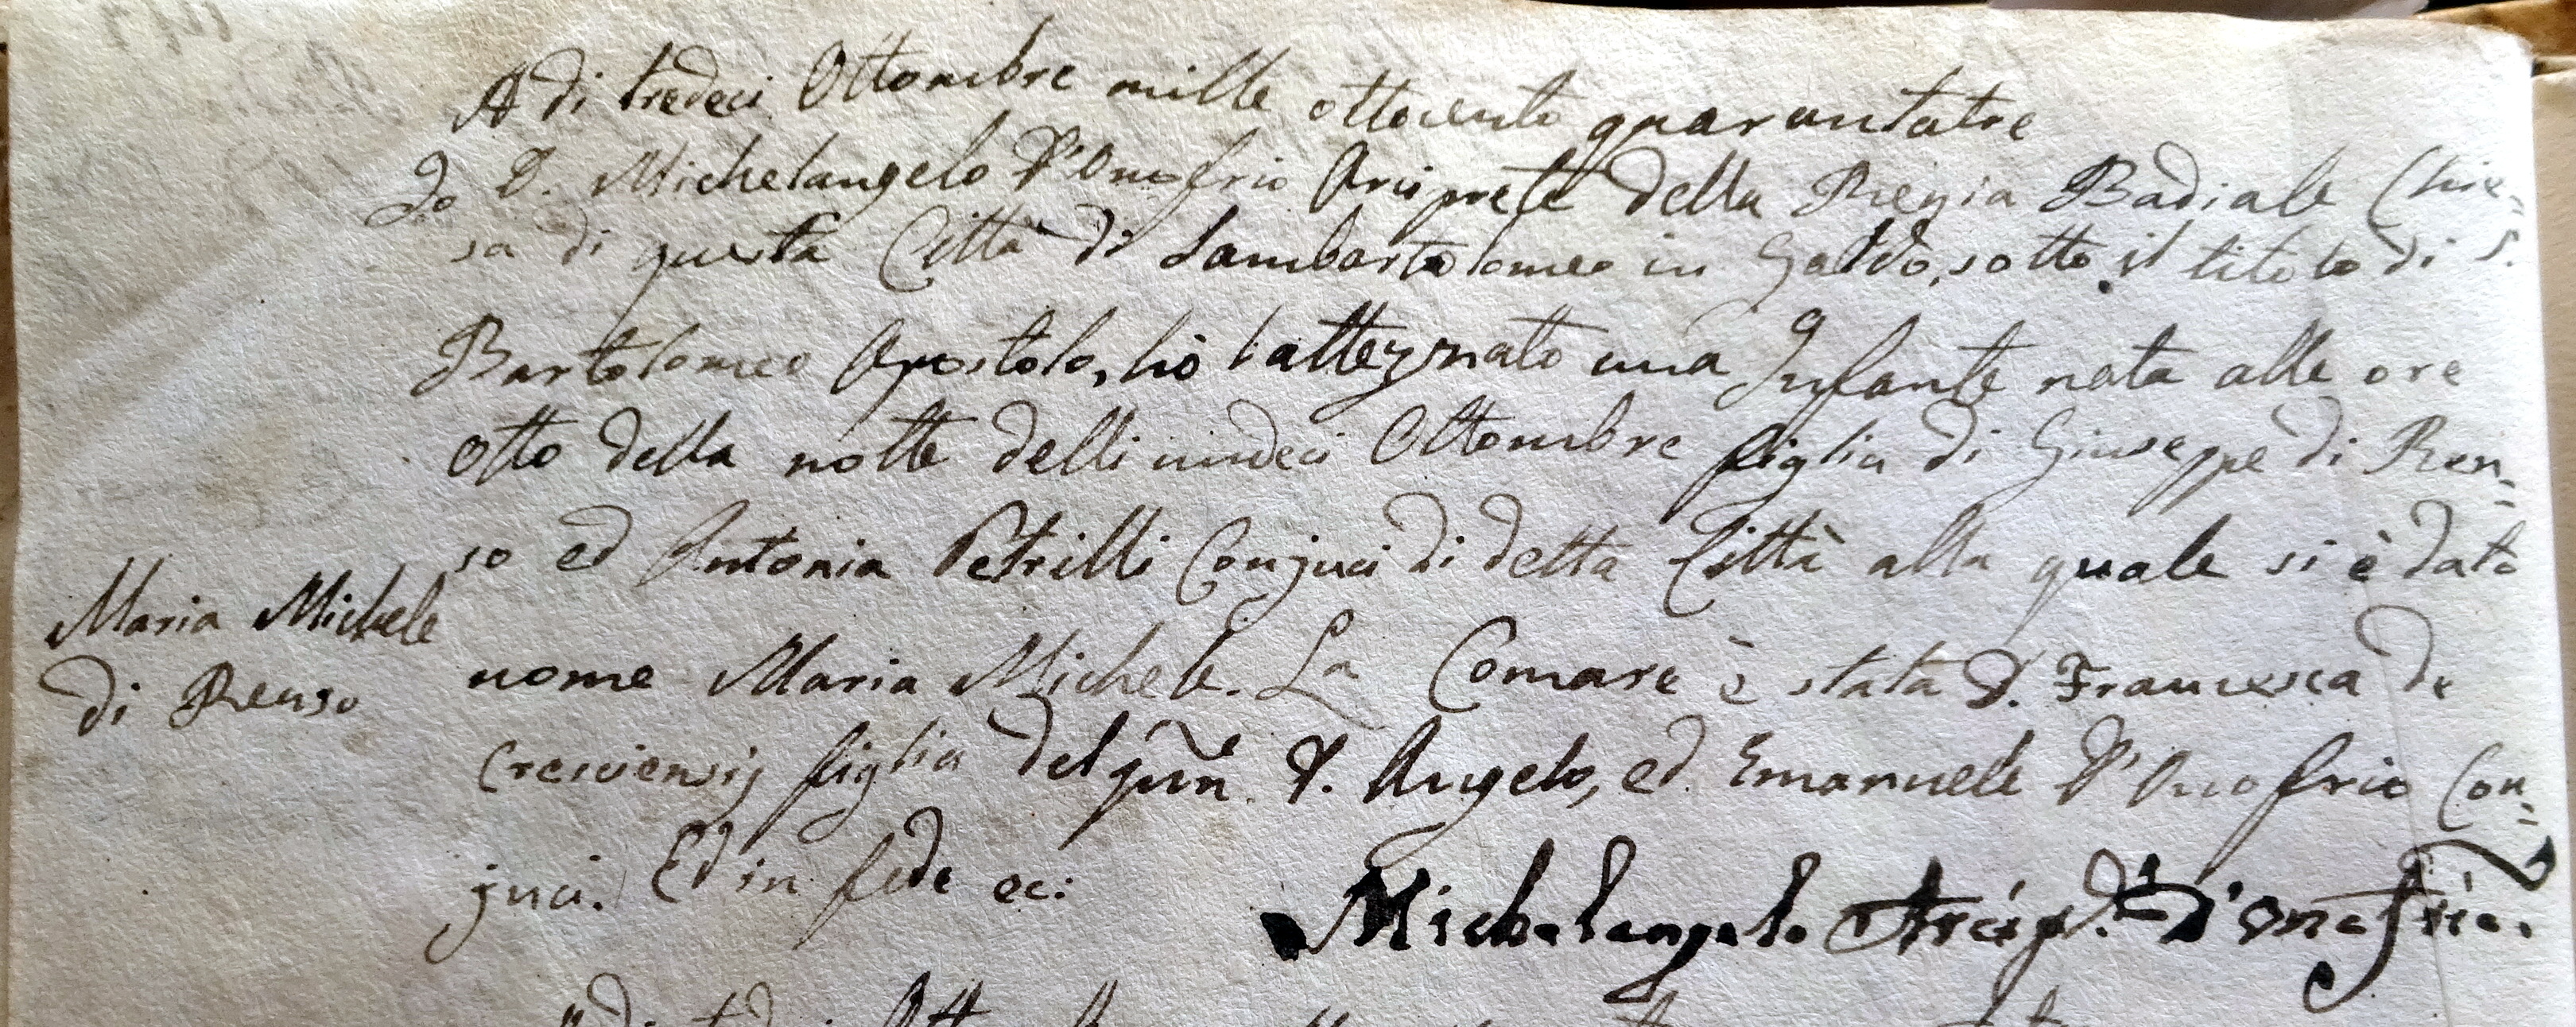 A di tredeci Ottombre mille ottocento quarantatre
Io D. Michelangelo D'Onofrio Arciprete della Regia Badiale Chie=
sa di questa Città di Sambartolomeo in Galdo, sotto il titolo di S.
Bartolomeo Apostolo, hò battezznato una Infante nata alle ore
otto della notte delli undeci Ottombre figlia di Giuseppe di Ren=
so ed Antonia Petrilli Conjuci di detta Città alla quale si è dato
Maria Michele
di Renso
nome Maria Michele. La Comare è stata D. Francesca de
Cresciensij figlia del qm̃ D. Angelo, ed Emanuele D'Onofrio Con=
juci. Ed in fede ec:
Michelangelo Arcip. D'Onofrio.